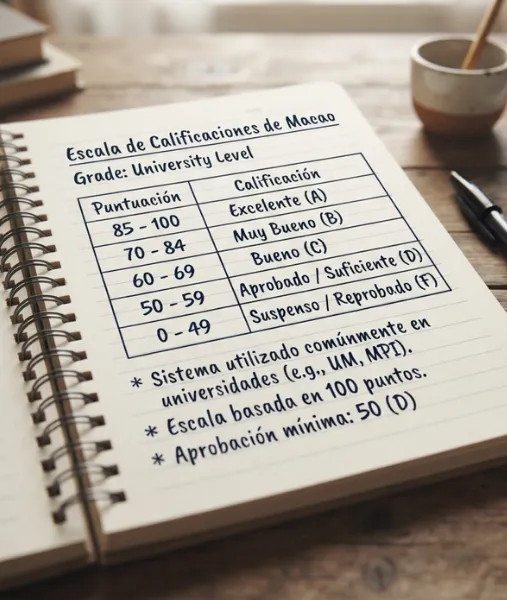 Escala de Calificaciones de Macao
Grade: University Level
Puntuación Calificación
85 - 100 Excelente (A)
70 - 84 Muy Bueno (B)
60 - 69 Bueno (C)
50 - 59 Aprobado / Suficiente (D)
0 - 49 Suspenso / Reprobado (F)
* Sistema utilizado comúnmente en
universidades (e.g., UM, MPI).
* Escala basada en 100 puntos.
* Aprobación mínima: 50 (D)